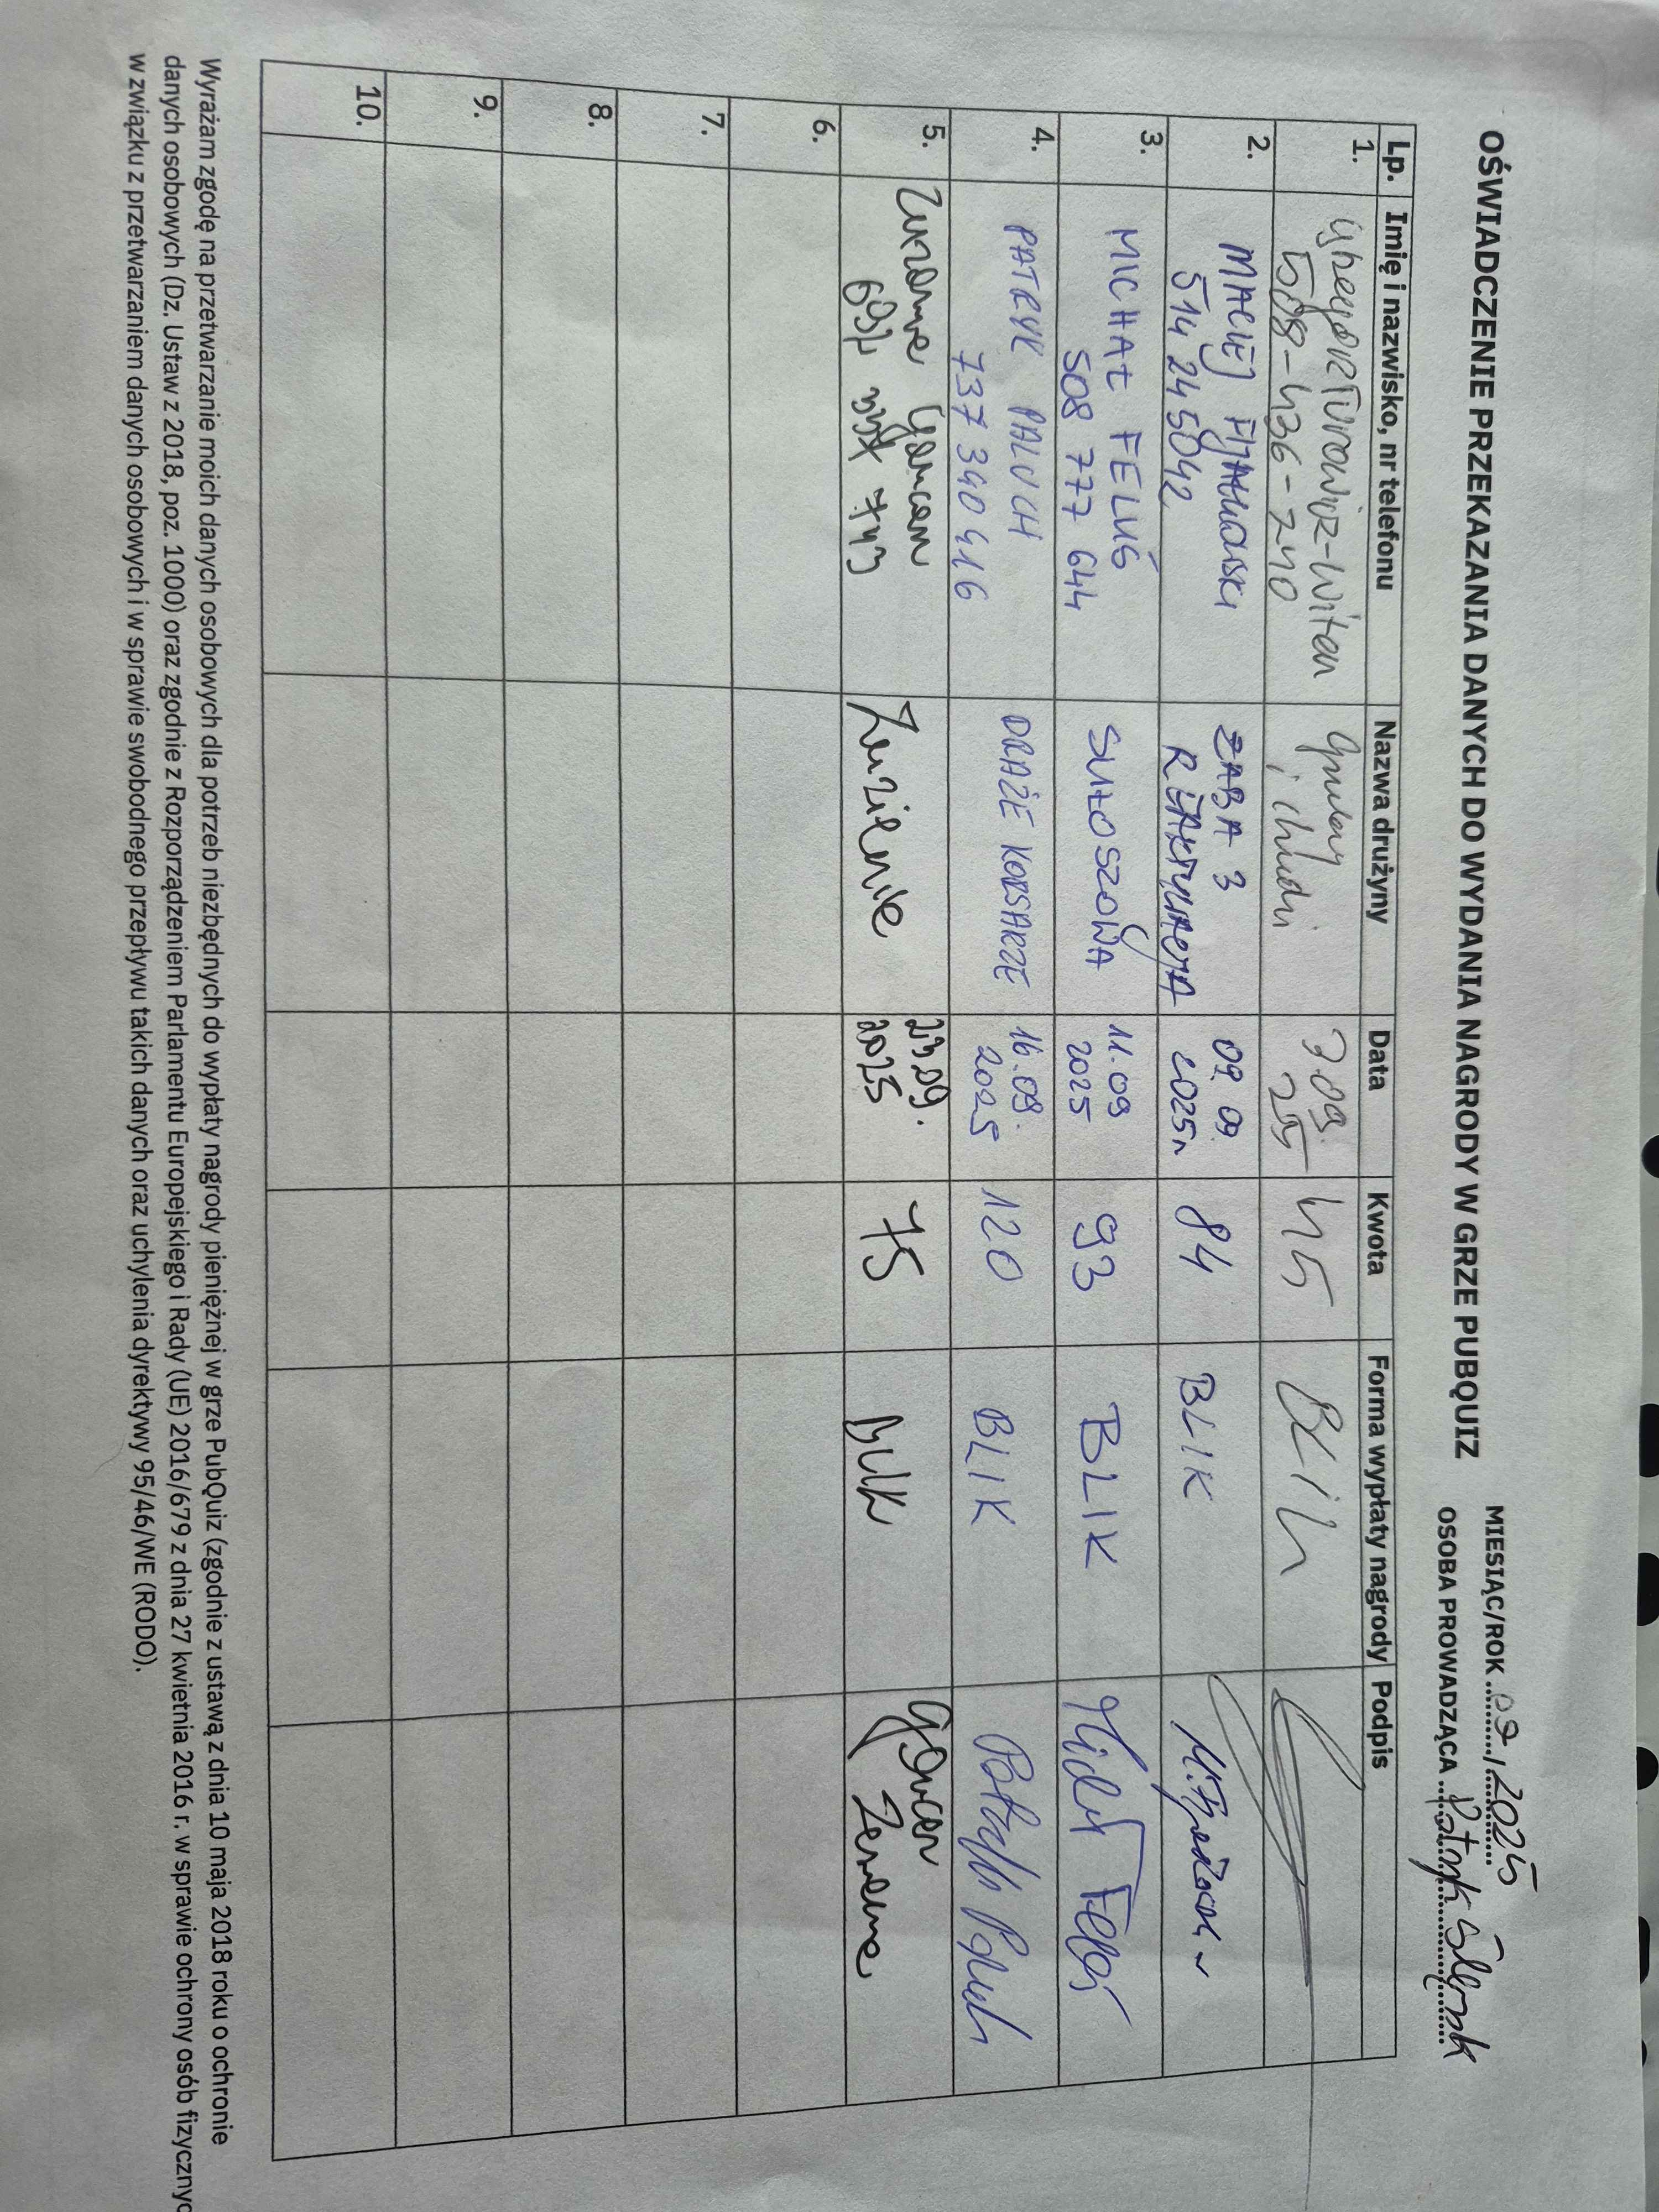 OŚWIADCZENIE PRZEKAZANIA DANYCH DO WYDANIA NAGRODY W GRZE PUBQUIZ
MIESIĄC/ROK 09/2025
OSOBA PROWADZĄCA Patryk
Lp. Imię i nazwisko, nr telefonu Nazwa drużyny Data Kwota Forma wypłaty nagrody Podpis
1. Grzegorz Turowicz-Witan Grubay i chudzi 3.09. 25 45 BLIK
508-436-240
2. MACIEJ ŻABA 3 09.09 84 BLIK
514 245042 REAKTYWACJA 2025r
3. MICHAŁ FELUŚ SUŁOSZOWA 11.09 93 BLIK Michał Feluś
508 777 644 2025
4. PATRYK PALUCH DRAŻE KORSARZE 16.09. 120 BLIK Patryk Paluch
737 340 416 2025
5. Zuzanna 23.09. 75 Blik
697 337 743 2025
6.
7.
8.
9.
10.
Wyrażam zgodę na przetwarzanie moich danych osobowych dla potrzeb niezbędnych do wypłaty nagrody pieniężnej w grze PubQuiz (zgodnie z ustawą z dnia 10 maja 2018 roku o ochronie
danych osobowych (Dz. Ustaw z 2018, poz. 1000) oraz zgodnie z Rozporządzeniem Parlamentu Europejskiego i Rady (UE) 2016/679 z dnia 27 kwietnia 2016 r. w sprawie ochrony osób fizycznyc
w związku z przetwarzaniem danych osobowych i w sprawie swobodnego przepływu takich danych oraz uchylenia dyrektywy 95/46/WE (RODO).